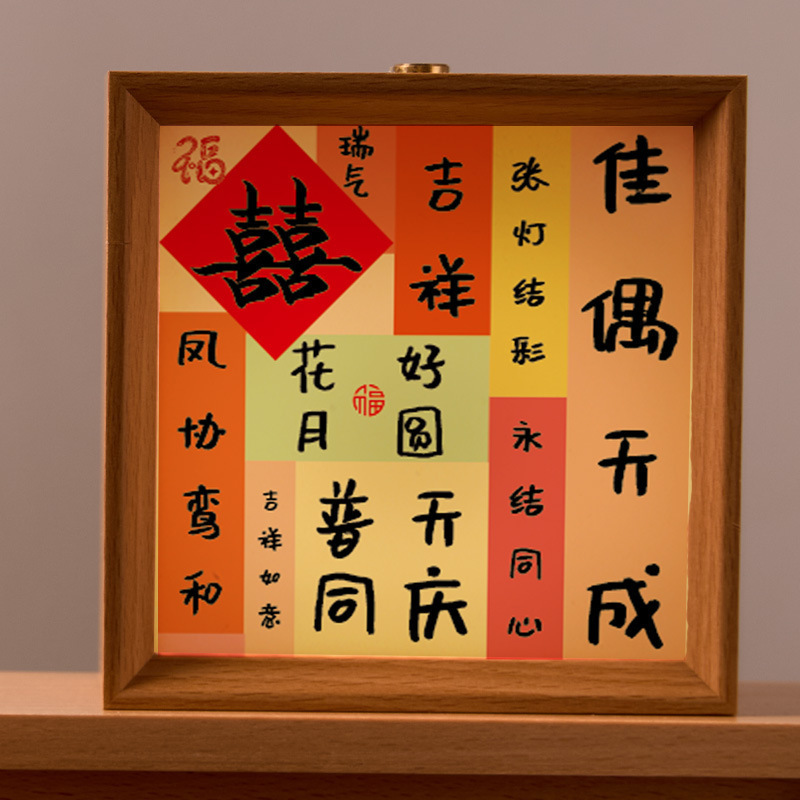 福
囍
瑞气
吉祥
张灯结彩
佳偶天成
凤协鸾和
花好
月圆
福
永结同心
吉祥如意
普天
同庆